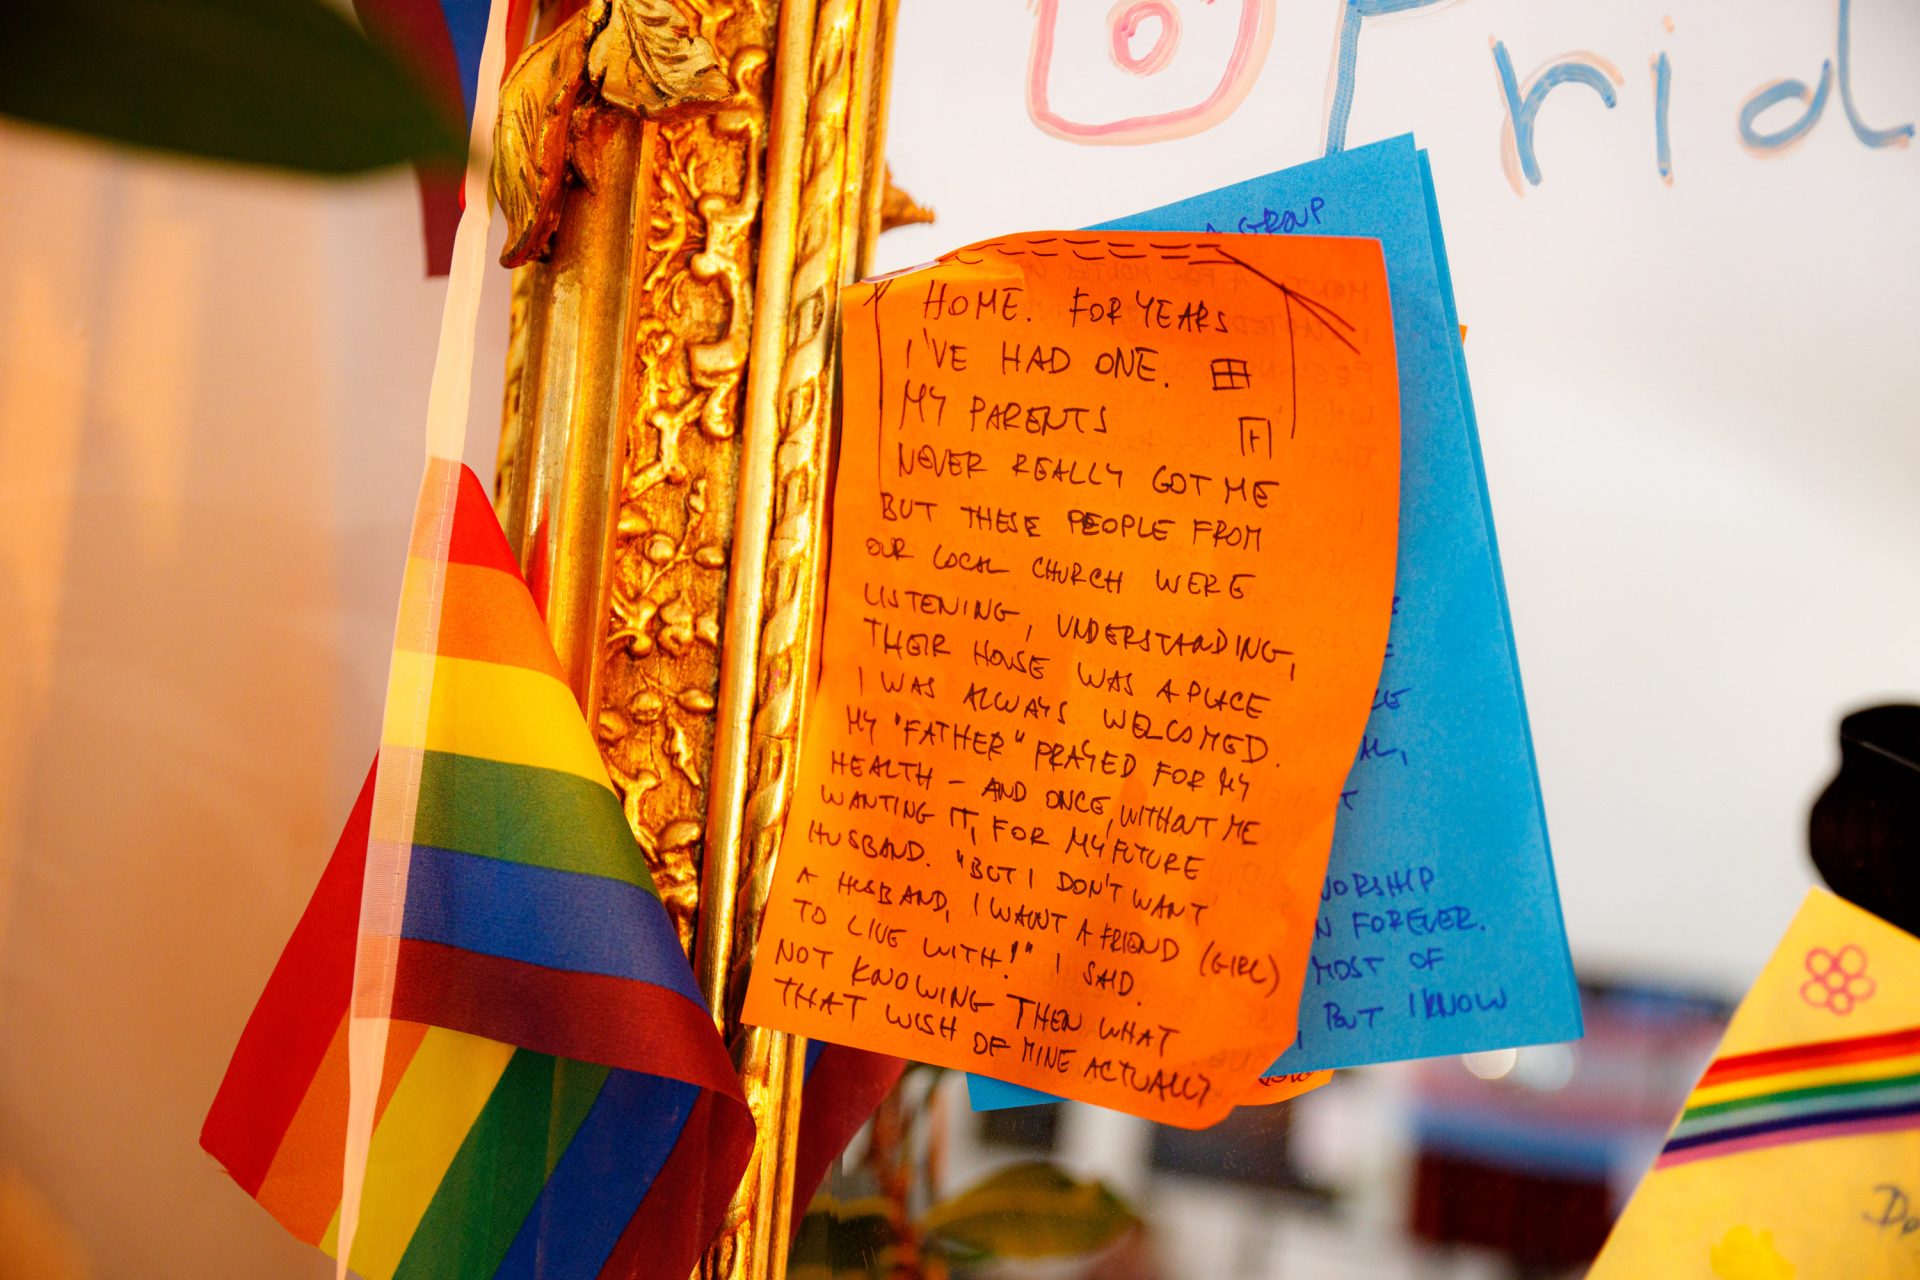 Prid
A GROUP
HOME. FOR YEARS
I'VE HAD ONE.
MY PARENTS
NEVER REALLY GOT ME
BUT THESE PEOPLE FROM
OUR LOCAL CHURCH WERE
LISTENING, UNDERSTANDING,
THEIR HOUSE WAS A PLACE
I WAS ALWAYS WELCOMED.
MY "FATHER" PRAYED FOR MY
HEALTH - AND ONCE, WITHOUT ME
WANTING IT, FOR MY FUTURE
HUSBAND. "BUT I DON'T WANT
A HUSBAND, I WANT A FRIEND (GIRL)
TO LIVE WITH!" I SAID.
NOT KNOWING THEN WHAT
THAT WISH OF MINE ACTUALLY
AL,
WORSHIP
N FOREVER.
MOST OF
BUT I KNOW
Do